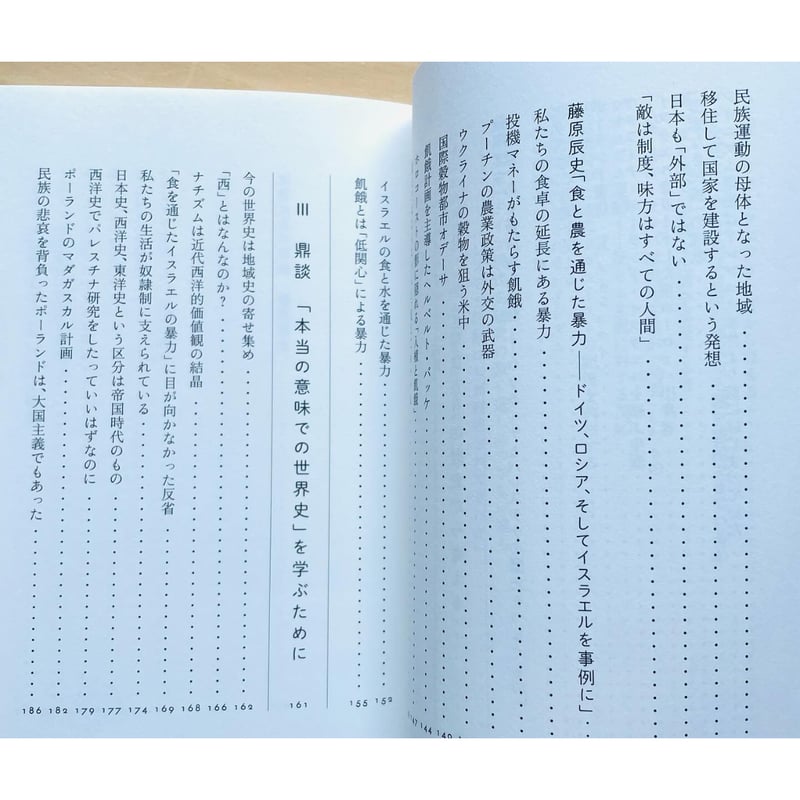 民族運動の母体となった地域
移住して国家を建設するという発想
日本も「外部」ではない
「敵は制度、味方はすべての人間」
藤原辰史「食と農を通じた暴力——ドイツ、ロシア、そしてイスラエルを事例に」
私たちの食卓の延長にある暴力
投機マネーがもたらす飢餓
プーチンの農業政策は外交の武器
ウクライナの穀物を狙う米中
国際穀物都市オデーサ 140
飢餓計画を主導したヘルベルト・バッケ 144
147
イスラエルの食と水を通じた暴力 152
飢餓とは「低関心」による暴力 155
III 鼎談 「本当の意味での世界史」を学ぶために 161
今の世界史は地域史の寄せ集め 162
「西」とはなんなのか? 166
ナチズムは近代西洋的価値観の結晶 168
「食を通じたイスラエルの暴力」に目が向かなかった反省 169
私たちの生活が奴隷制に支えられている 174
日本史、西洋史、東洋史という区分は帝国時代のもの 177
西洋史でパレスチナ研究をしたっていいはずなのに 179
ポーランドのマダガスカル計画 182
民族の悲哀を背負ったポーランドは、大国主義でもあった 186